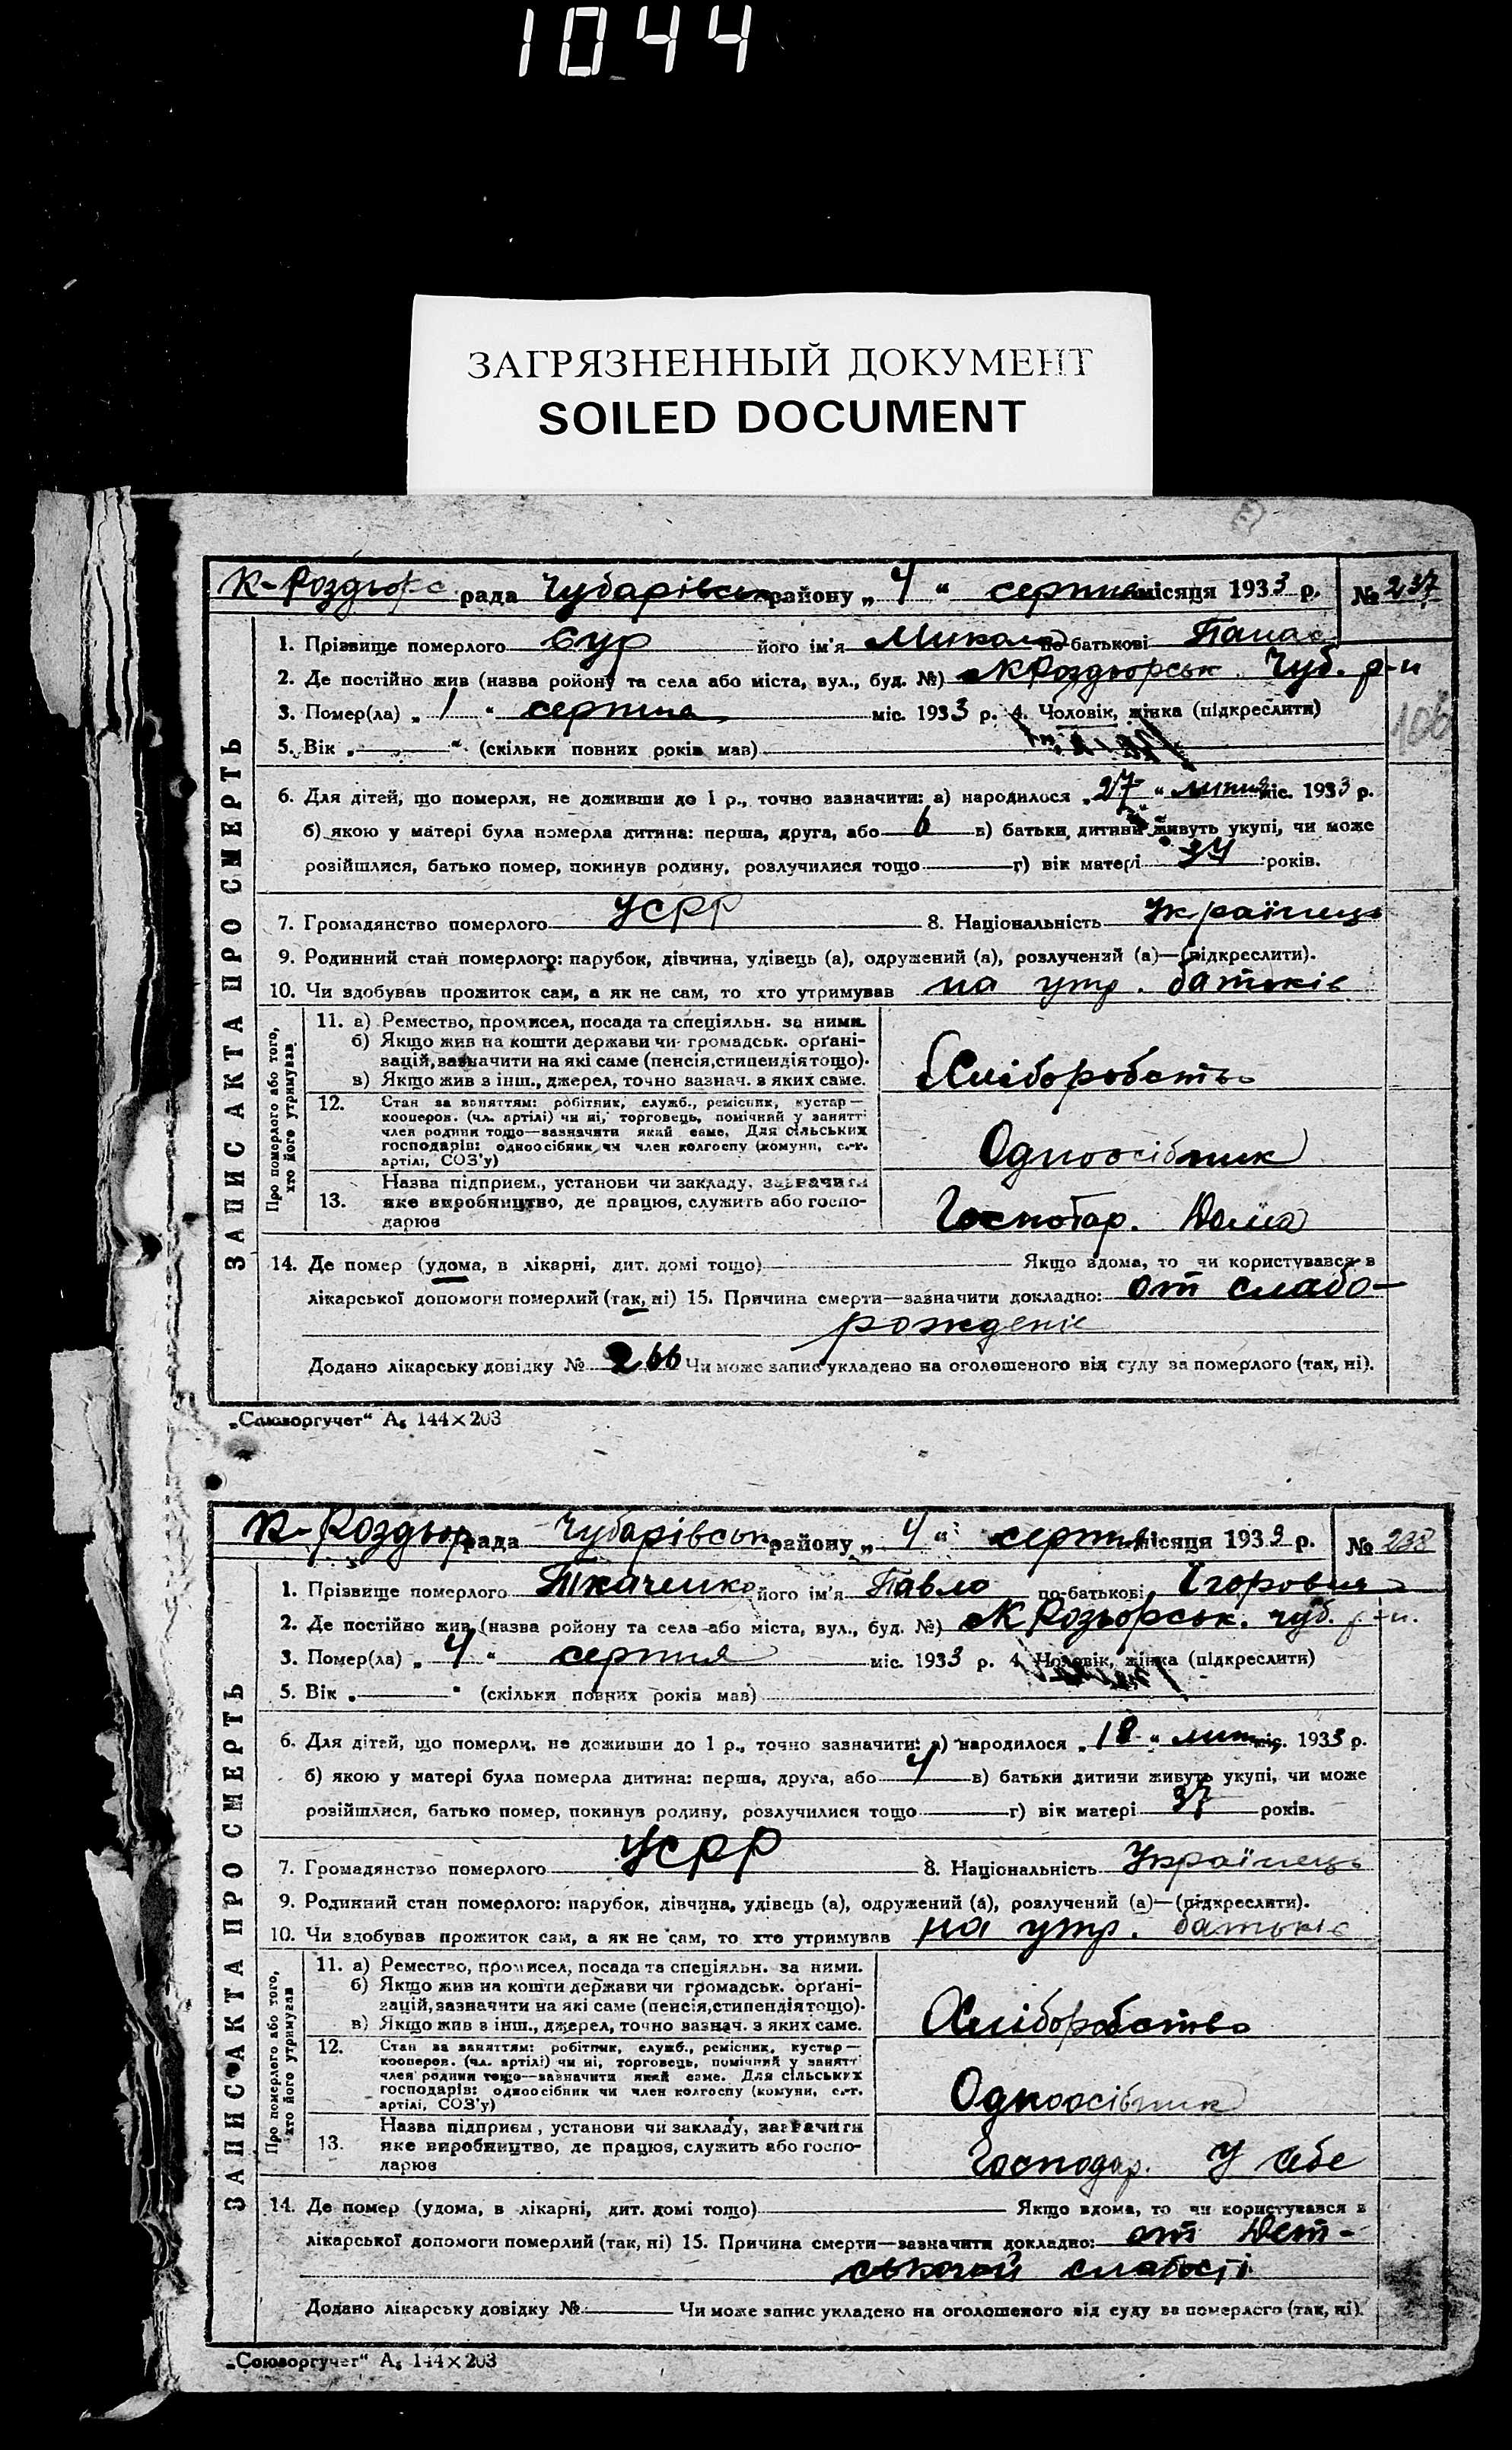 1044
ЗАГРЯЗНЕННЫЙ ДОКУМЕНТ
SOILED DOCUMENT
К-Роздорс рада Чубарівськ району „ 4 “ серпня місяця 1933 р. № 237
1. Прізвище померлого Бур його ім'я Микола по-батькові Панас
2. Де постійно жив (назва ройону та села або міста, вул., буд. №) МКРоздорськ Чуб. р-н
3. Помер(ла) „ 1 “ серпня міс. 1933 р. 4. Чоловік, жінка (підкреслити)
106
5. Вік „ “ (скільки повних років мав)
6. Для дітей, що померли, не доживши до 1 р., точно зазначити: а) народилося „ 27 “ липня міс. 1933 р.
б) якою у матері була померла дитина: перша, друга, або 6 в) батьки дитини живуть укупі, чи може
розійшлися, батько помер, покинув родину, розлучилися тощо г) вік матері 34 років.
7. Громадянство померлого УСРР 8. Національність Українець
9. Родинний стан померлого: парубок, дівчина, удівець (а), одружений (а), розлучений (а)—(підкреслити).
10. Чи здобував прожиток сам, а як не сам, то хто утримував на утр. батьків
ЗАПИС АКТА ПРО СМЕРТЬ
Про померлого або того, хто його утримував
11. а) Ремество, промисел, посада та спеціяльн. за ними.
б) Якщо жив на кошти держави чи громадськ. організацій, зазначити на які саме (пенсія, стипендія тощо).
в) Якщо жив з інш., джерел, точно зазнач. з яких саме.
Хліборобство
12. Стан за заняттям: робітник, служб., ремісник, кустар—
кооперов. (чл. артілі) чи ні, торговець, помічний у занятті
член родини тощо—зазначити який саме. Для сільських
господарів: одноосібник чи член колгоспу (комуни, с.-г.
артілі, СОЗ'у)
Одноосібник
13. Назва підприєм., установи чи закладу, зазначити
яке виробництво, де працює, служить або госпо-
дарює
Господар. Дома
14. Де помер (удома, в лікарні, дит. домі тощо) Якщо вдома, то чи користувався з
лікарської допомоги померлий (так, ні) 15. Причина смерти—зазначити докладно: от слабо-
рождение
Додано лікарську довідку № 266 Чи може запис укладено на оголошеного від суду за померлого (так, ні).
„Союзоргучет“ А₅ 144×203
К-Роздор рада Чубарівськ району „ 4 “ серпня місяця 1933 р. № 238
1. Прізвище померлого Ткаченко його ім'я Павло по-батькові Ігорович
2. Де постійно жив (назва ройону та села або міста, вул., буд. №) МКРозьорськ. чуб. р-н.
3. Помер(ла) „ 4 “ серпня міс. 1933 р. 4. Чоловік, жінка (підкреслити)
5. Вік „ “ (скільки повних років мав)
6. Для дітей, що померли, не доживши до 1 р., точно зазначити: а) народилося „ 18 “ лип міс. 1933 р.
б) якою у матері була померла дитина: перша, друга, або 4 в) батьки дитини живуть укупі, чи може
розійшлися, батько помер, покинув родину, розлучилися тощо г) вік матері 37 років.
7. Громадянство померлого УСРР 8. Національність Українець
9. Родинний стан померлого: парубок, дівчина, удівець (а), одружений (а), розлучений (а)—(підкреслити).
10. Чи здобував прожиток сам, а як не сам, то хто утримував на утр. батьків
ЗАПИС АКТА ПРО СМЕРТЬ
Про померлого або того, хто його утримував
11. а) Ремество, промисел, посада та спеціяльн. за ними.
б) Якщо жив на кошти держави чи громадськ. організацій, зазначити на які саме (пенсія, стипендія тощо).
в) Якщо жив з інш., джерел, точно зазнач. з яких саме.
Хліборобство
12. Стан за заняттям: робітник, служб., ремісник, кустар—
кооперов. (чл. артілі) чи ні, торговець, помічний у занятті
член родини тощо—зазначити який саме. Для сільських
господарів: одноосібник чи член колгоспу (комуни, с.-г.
артілі, СОЗ'у)
Одноосібник
13. Назва підприєм., установи чи закладу, зазначити
яке виробництво, де працює, служить або госпо-
дарює
Господар. У себе
14. Де помер (удома, в лікарні, дит. домі тощо) Якщо вдома, то чи користувався з
лікарської допомоги померлий (так, ні) 15. Причина смерти—зазначити докладно: от Дет-
ськой слабості
Додано лікарську довідку № Чи може запис укладено на оголошеного від суду за померлого (так, ні).
„Союзоргучет“ А₅ 144×203